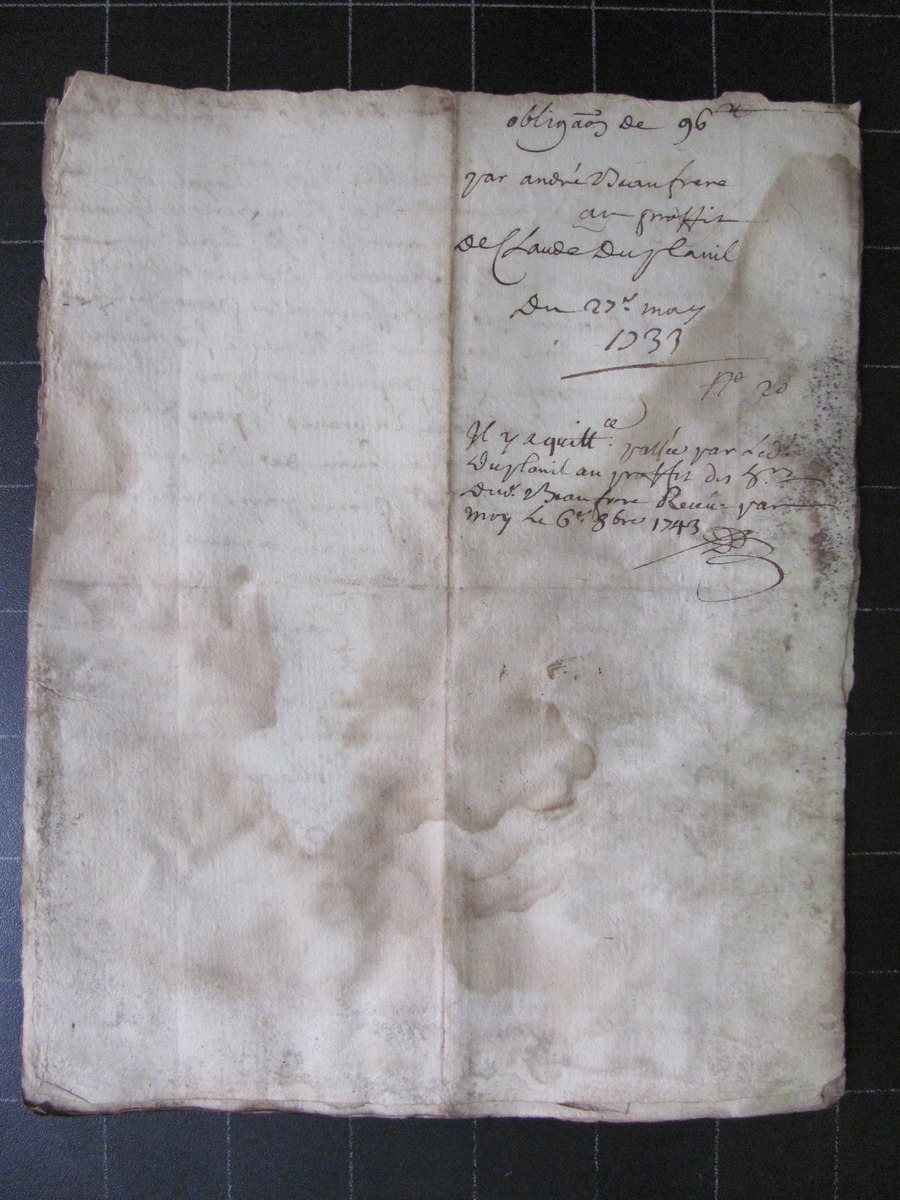 obligaõn de 96ᵗᵗ
par andré Beaufrere
au proffit
De Claude Duplanil
Du 27ᵉ. may
1733
Nº 20
Il y a quittᶜᵉ. passée par Ledᵗ.
Duplanil au proffit des hʳˢ
dud. Beaufrere Receüe par
moy Le 6ᵉ. 8bre 1743